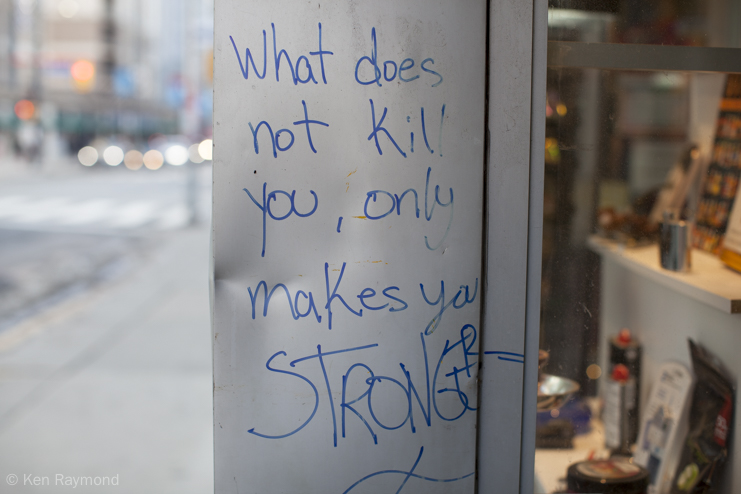 What does
not kill
you, only
makes you
STRONGER
© Ken Raymond